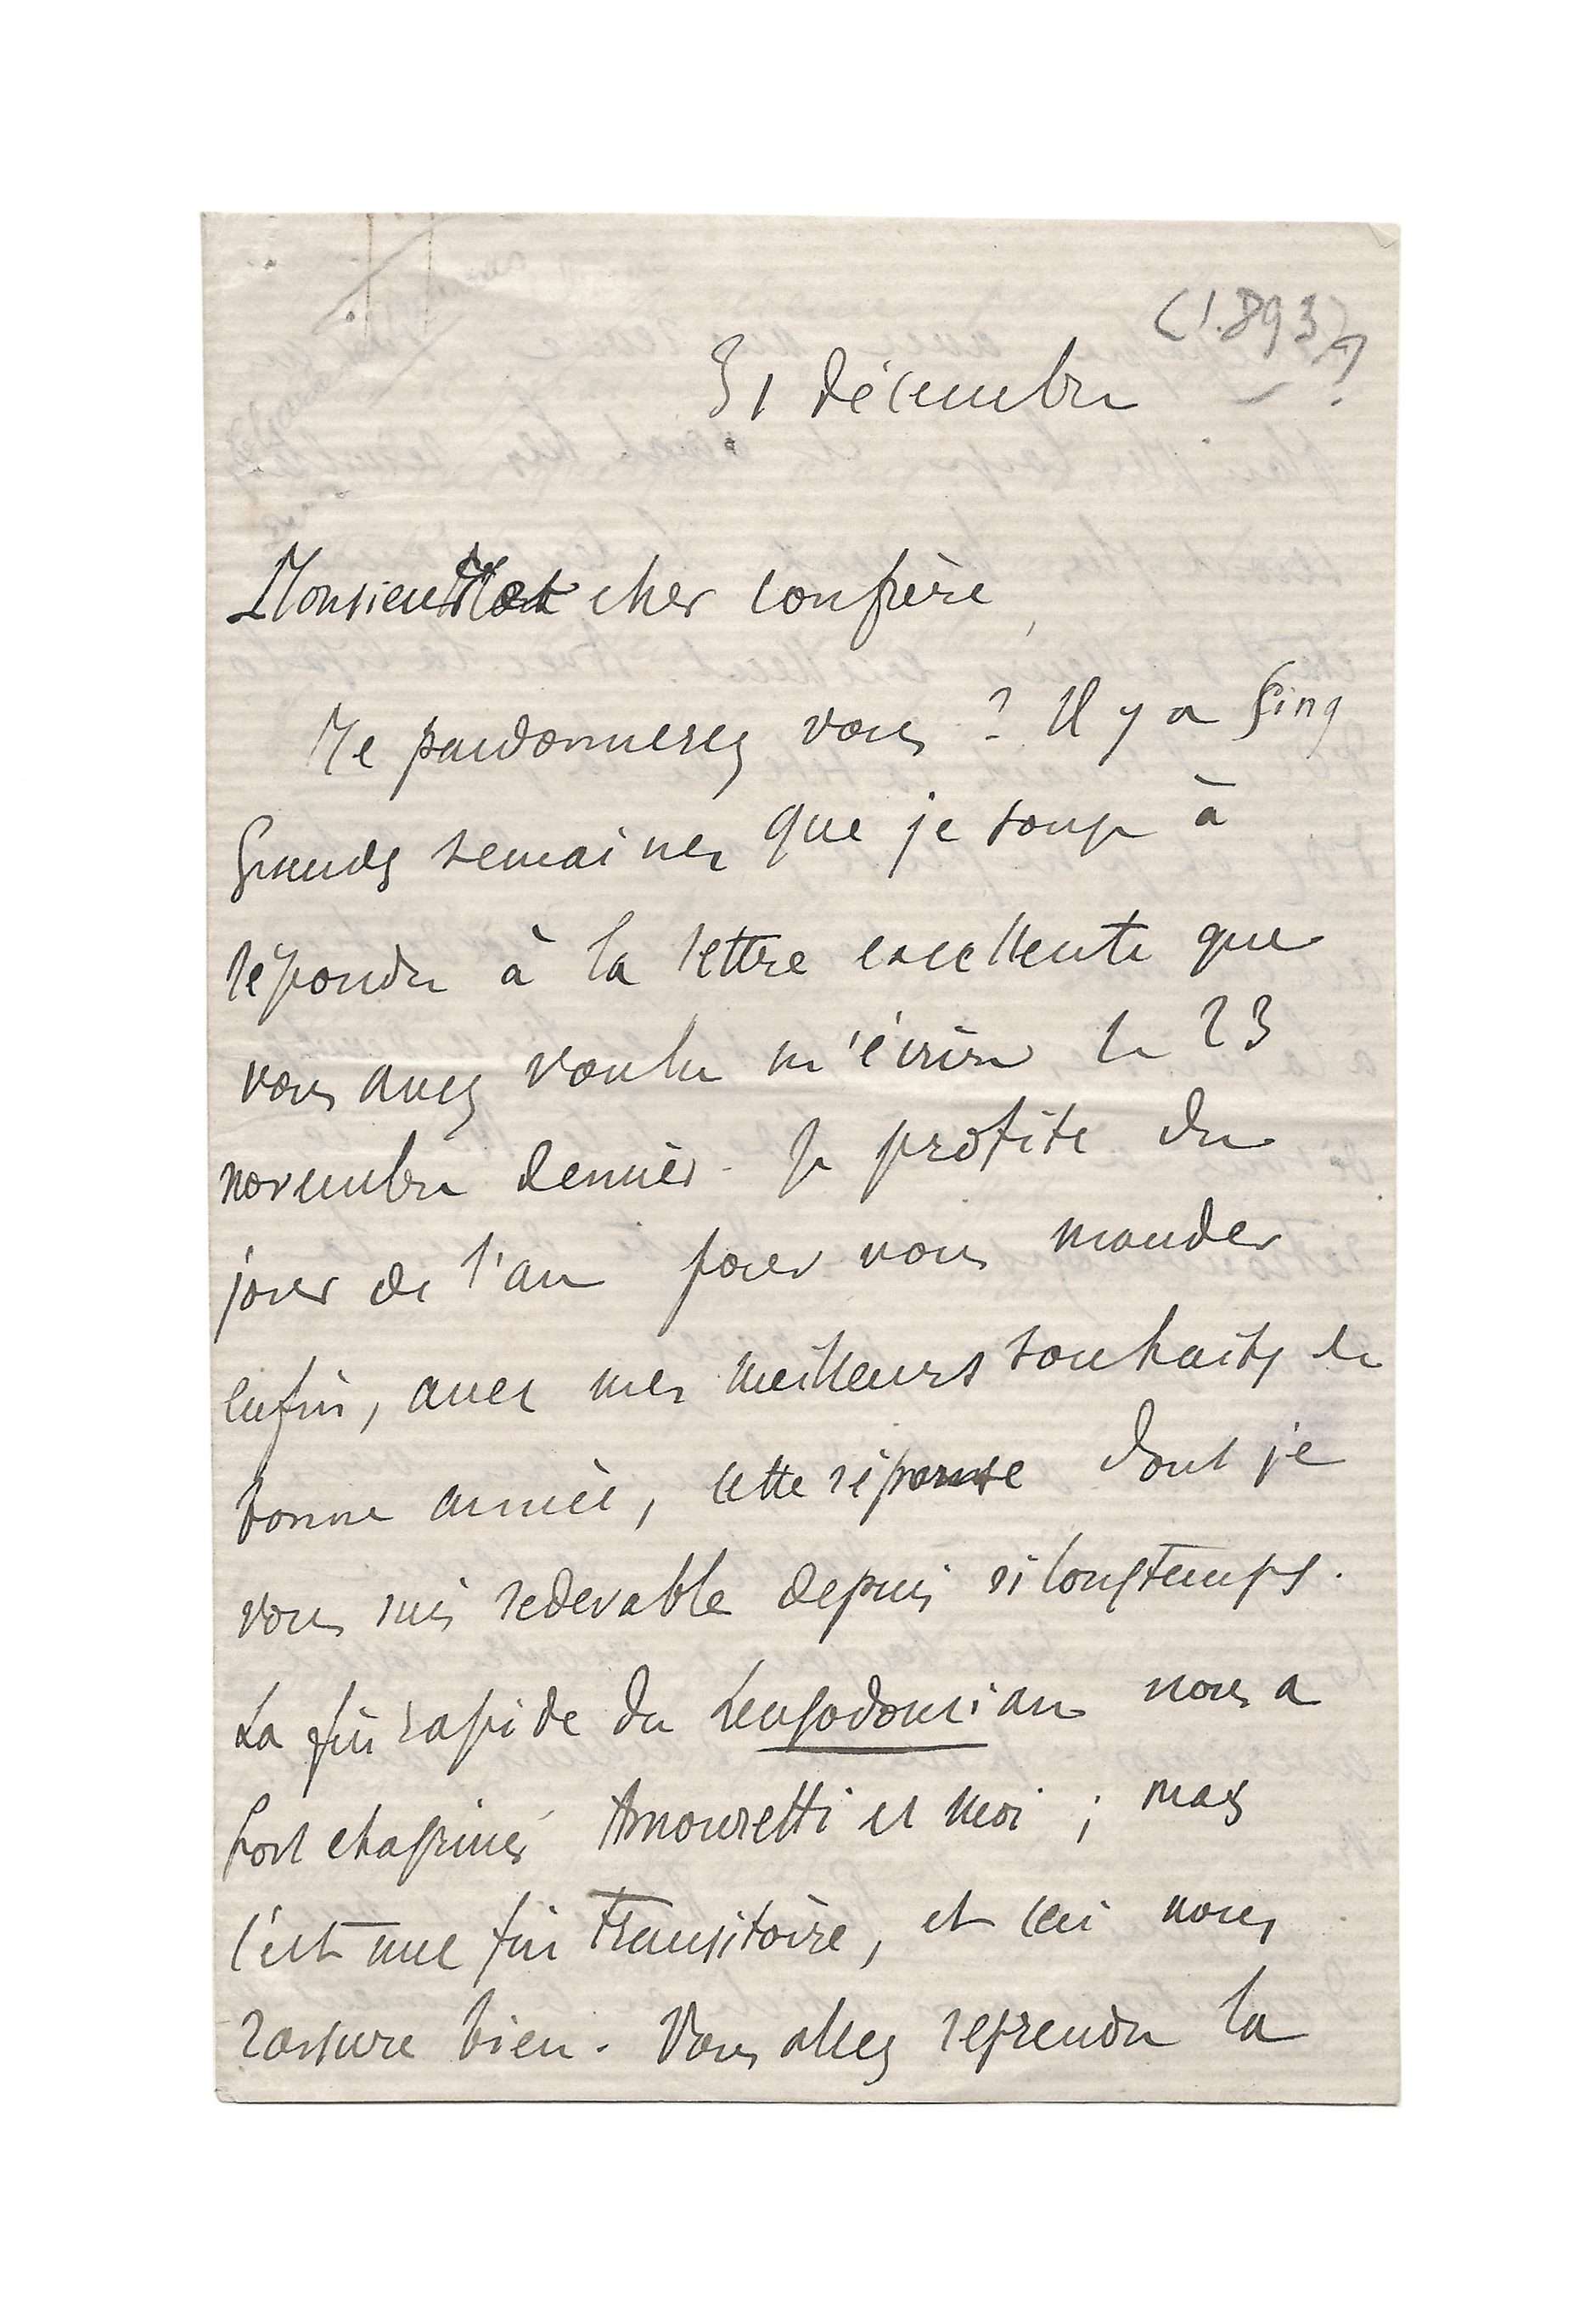 (1893)?
31 décembre
Monsieur et cher confrère,
Me pardonnerez vous ? Il y a cinq
grandes semaines que je songe à
répondre à la lettre excellente que
vous avez voulu m'écrire le 23
novembre dernier. Je profite du
jour de l'an pour vous mander
enfin, avec mes meilleurs souhaits de
bonne année, cette réponse dont je
vous suis redevable depuis si longtemps.
La fin rapide du Lengodoucian nous a
fort chagrinés Amouretti et moi ; mais
c'est une fin transitoire, et ceci nous
rassure bien. Vous allez reprendre la